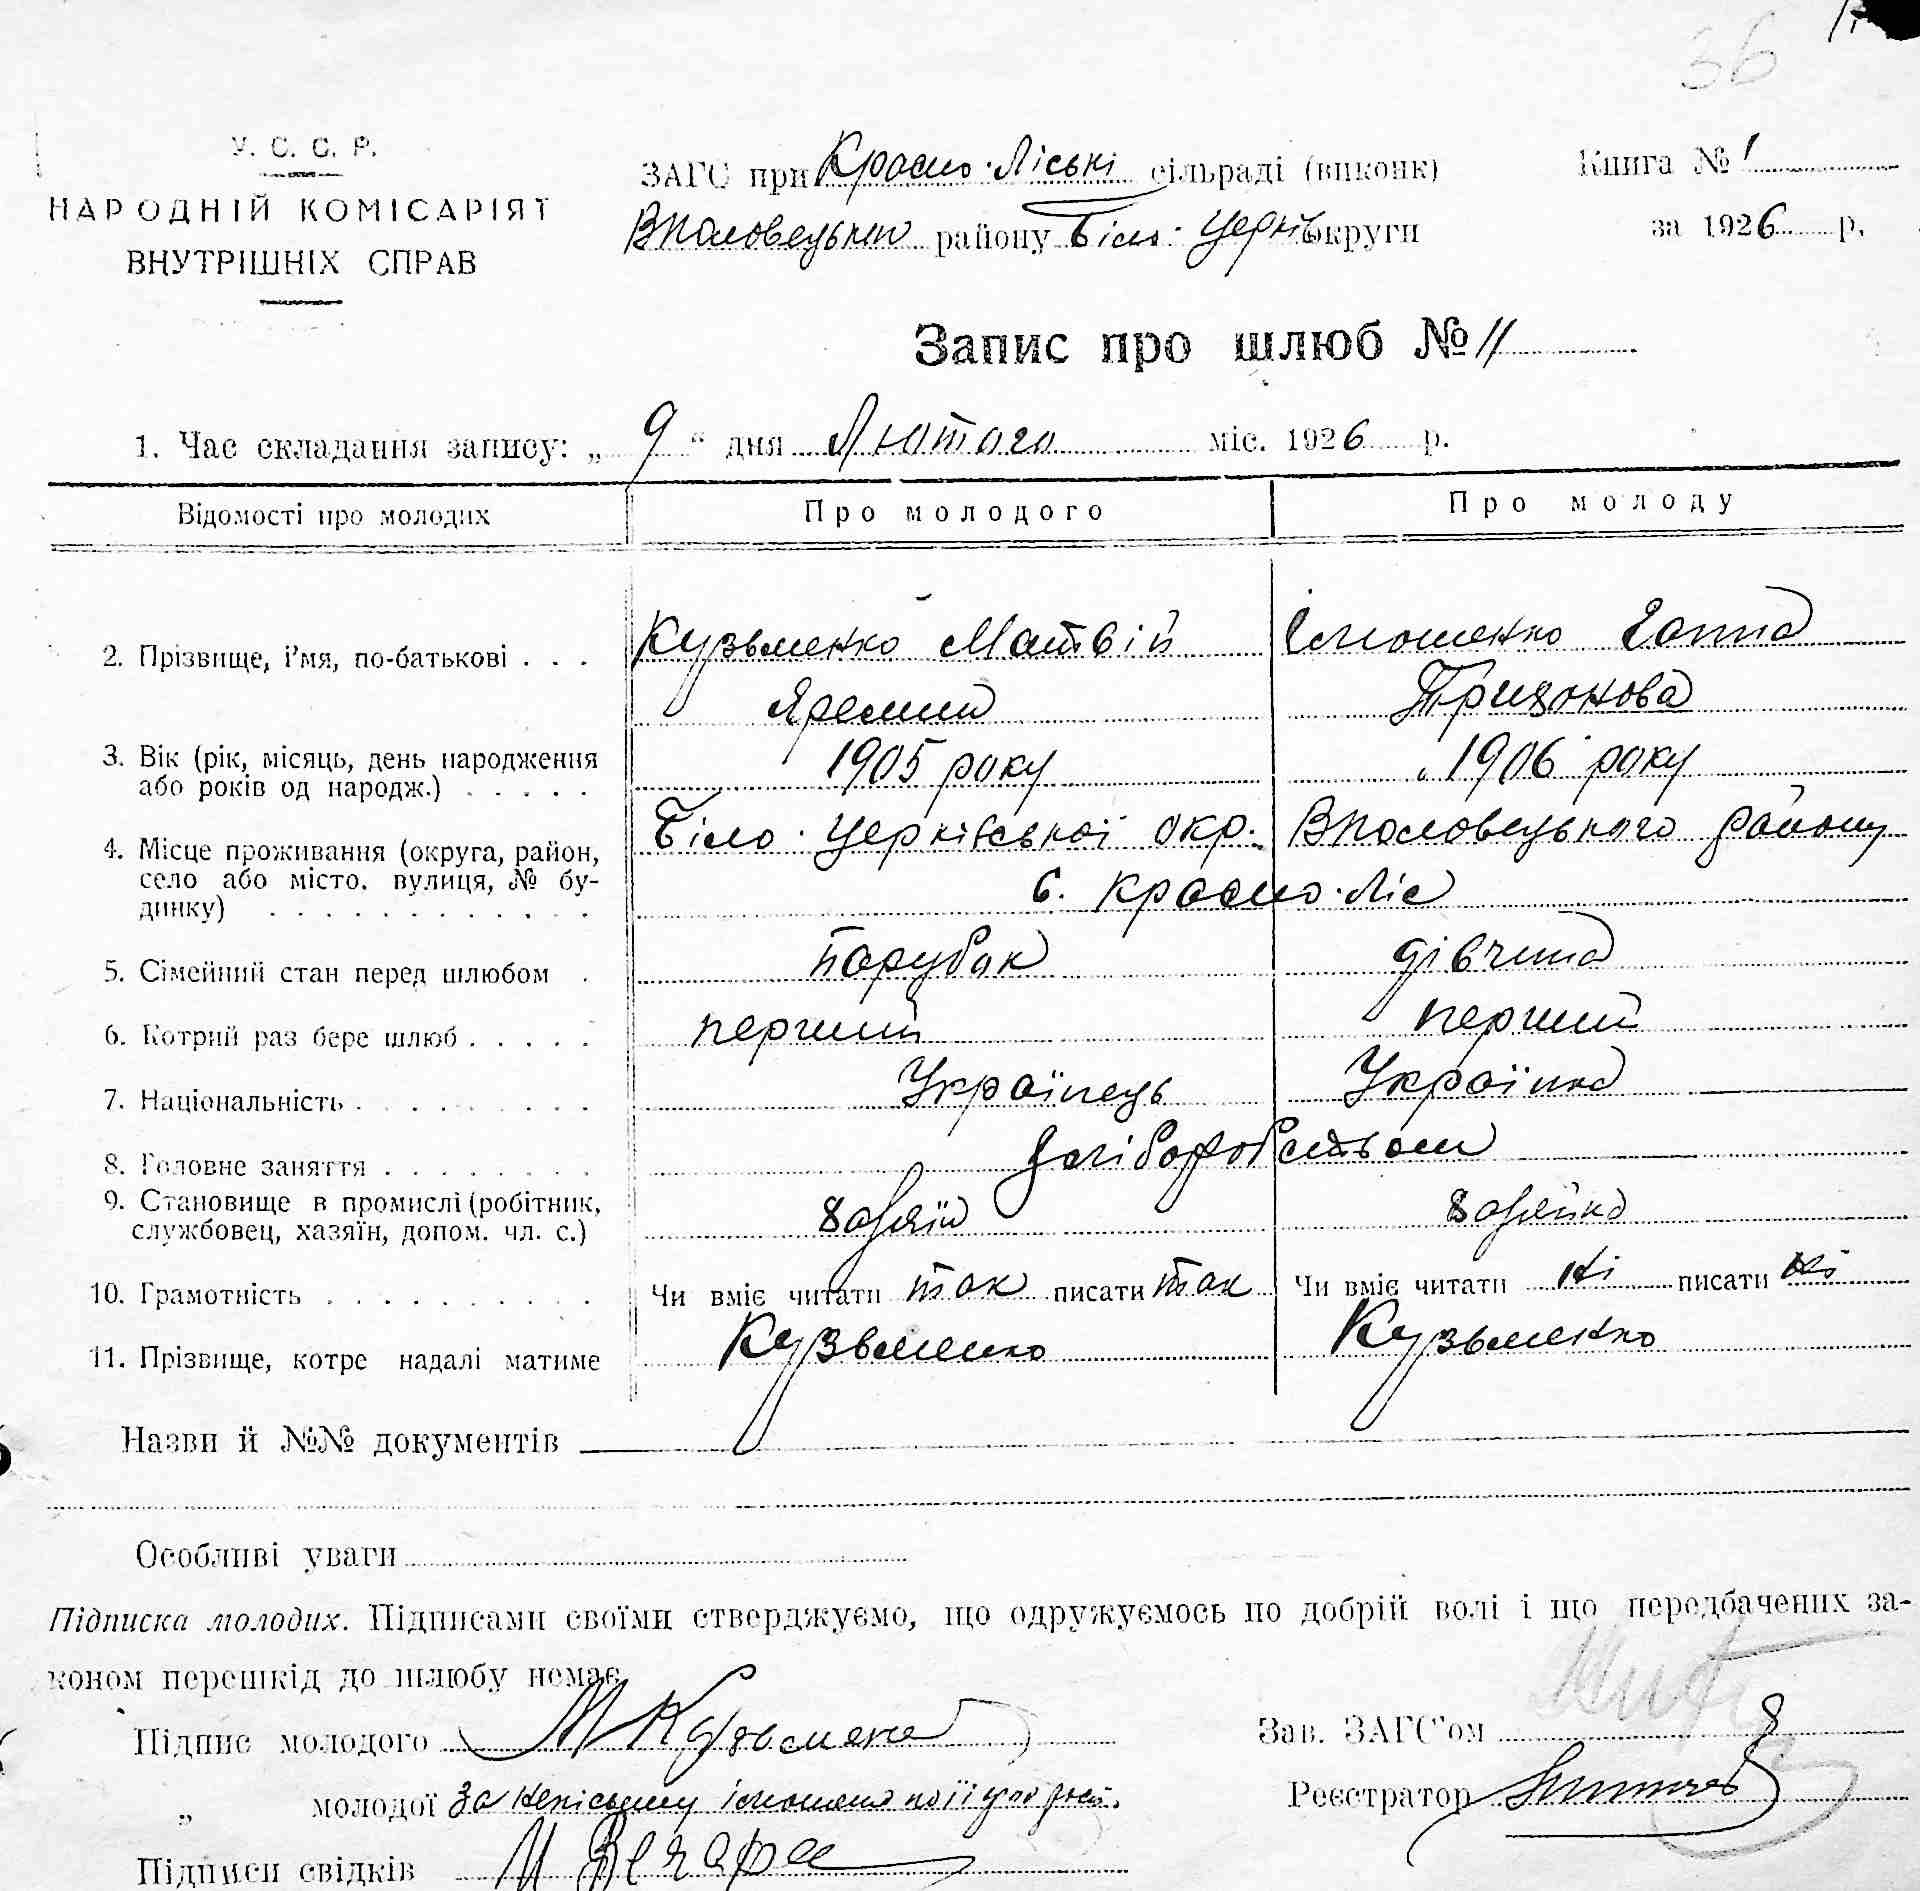 36
У. С. С. Р.
НАРОДНІЙ КОМІСАРІЯТ
ВНУТРІШНІХ СПРАВ
ЗАГС при Красно-Ліські сільраді (виконк)
Вполовецьким району Біло-Церків округи
Книга № 1
за 1926 р.
Запис про шлюб № 11
1. Час складання запису: „ 9 “ дня Лютого міс. 1926 р.
Відомості про молодих Про молодого Про молоду
2. Прізвище, і’мя, по-батькові . . . Кузьменко Матвій Ілюшенко Ганна
Яремин Тризонова
3. Вік (рік, місяць, день народження
або років од народж.) . . . . . 1905 року 1906 року
4. Місце проживання (округа, район, Біло-Церківської окр. Вполовецького району
село або місто, вулиця, № бу-
динку) . . . . . . . . . . . . с. Красно-Ліс
5. Сімейний стан перед шлюбом . парубок дівчина
6. Котрий раз бере шлюб . . . . . перший перший
7. Національність . . . . . . . . . Українець Українка
8. Головне заняття . . . . . . . . хліборобством
9. Становище в промислі (робітник,
службовец, хазяїн, допом. чл. с.) хазяїн хазяйка
10. Грамотність . . . . . . . . . . Чи вміє читати так писати так Чи вміє читати ні писати ні
11. Прізвище, котре надалі матиме Кузьменко Кузьменко
Назви й №№ документів
Особливі уваги
Підписка молодих. Підписами своїми стверджуємо, що одружуємось по добрій волі і що передбачених за-
коном перешкід до шлюбу немає
Підпис молодого М Кузьменко
Зав. ЗАГС’ом
„ молодої За неписьмену
Реєстратор
Підписи свідків И